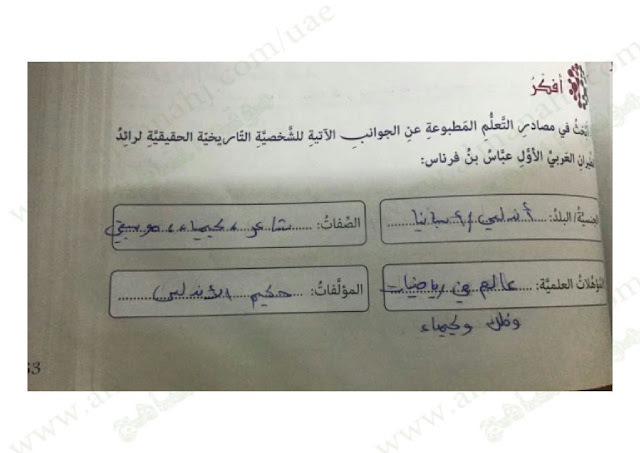 أفكّرُ
أبحثُ في مصادرِ التَّعلُّمِ المَطبوعةِ عنِ الجوانبِ الآتيةِ للشَّخصيَّةِ التّاريخيّة الحقيقيَّةِ لرائدِ
الطيرانِ العَربيِّ الأوَّلِ عبّاسُ بنُ فرناس:
الجنسيَّةُ/ البلدُ: أندلسي / اسبانيا
الصِّفاتُ: شاعر، كيمياء، موسيقي
المؤهِّلاتُ العلميَّة: عالم في رياضيات
وفلك وكيمياء
المؤلَّفاتُ: حكيم الأندلس
53
www.almanahj.com/uae